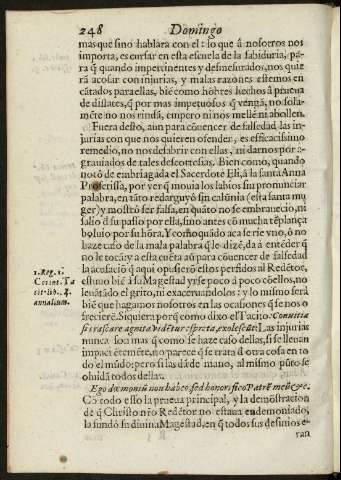 248 Domingo
mas que sino hablara con el: lo que à nosotros nos
importa, es cursar en esta escuela de la sabiduria, pa-
ra q̃ quando impertinentes y desmesurados, nos quie
rã acosar con injurias, y malas razones estemos en
cãtados para ellas, biẽ como hõbres hechos à prueua
de dislates, q̃ por mas impetuosos q̃ vengã, no sola-
mẽte no nos rindã, empero ni nos mellẽ ni abollen.
Fuera desto, aun para cõuencer de falsedad las in-
jurias con que nos quieren ofender, es efficacissimo
remedio, no nos desabrir con ellas, ni darnos por a-
grauiados de tales descortesias. Bien como, quando
notò de embriagada el Sacerdote Eli, à la santa Anna
Profetissa, por ver q̃ mouia los labios sin pronunciar
palabra, en tãto redarguyò sin calũnia (esta santa mu
ger) y mostrò ser falsa, en quãto no se embrauecio, ni
salio d̃ su passo por ella, sino antes cõ mucha tẽplança
boluio por su hõra. Y como quãdo aca se rie vno, ò no
haze caso de la mala palabra q̃ le dizẽ, da à entẽder q̃
no le toca; y a esta cuẽta aũ para cõuencer de falsedad
la acusaciõ q̃ aqui opusierõ estos perfidos al Redẽtor,
estuuo biẽ à su Magestad yrse poco à poco cõ ellos, no
leuãtado el grito, ni exacerandolos: y lo mismo serà
biẽ que hagamos nosotros en las ocasiones q̃ se nos o
frecierẽ. Siquiera porq̃ como dixo el Tacito. Conuitia
si irascare agnita vidẽtur: spreta, exolescũt. Las injurias
nunca son mas q̃ como se haze caso dellas, si se lleuan
impaciẽtemẽte, no parece q̃ se trata d̃ otra cosa en to
do el mũdo: pero si las dã de mano, al mismo pũto se
oluidã todos dellas.
1. Reg. 1.
Corne. Ta
cit. lib. 4.
annalium.
Ego dæmoniũ non habeo, sed honorifico Patrẽ meũ, &c.
Cõ todo esso la prueua principal, y la demõstracion
de q̃ Christo nr̃o Redẽtor no estaua endemoniado,
la fundò su diuina Magestad, en q̃ todos sus desinios e-
ran